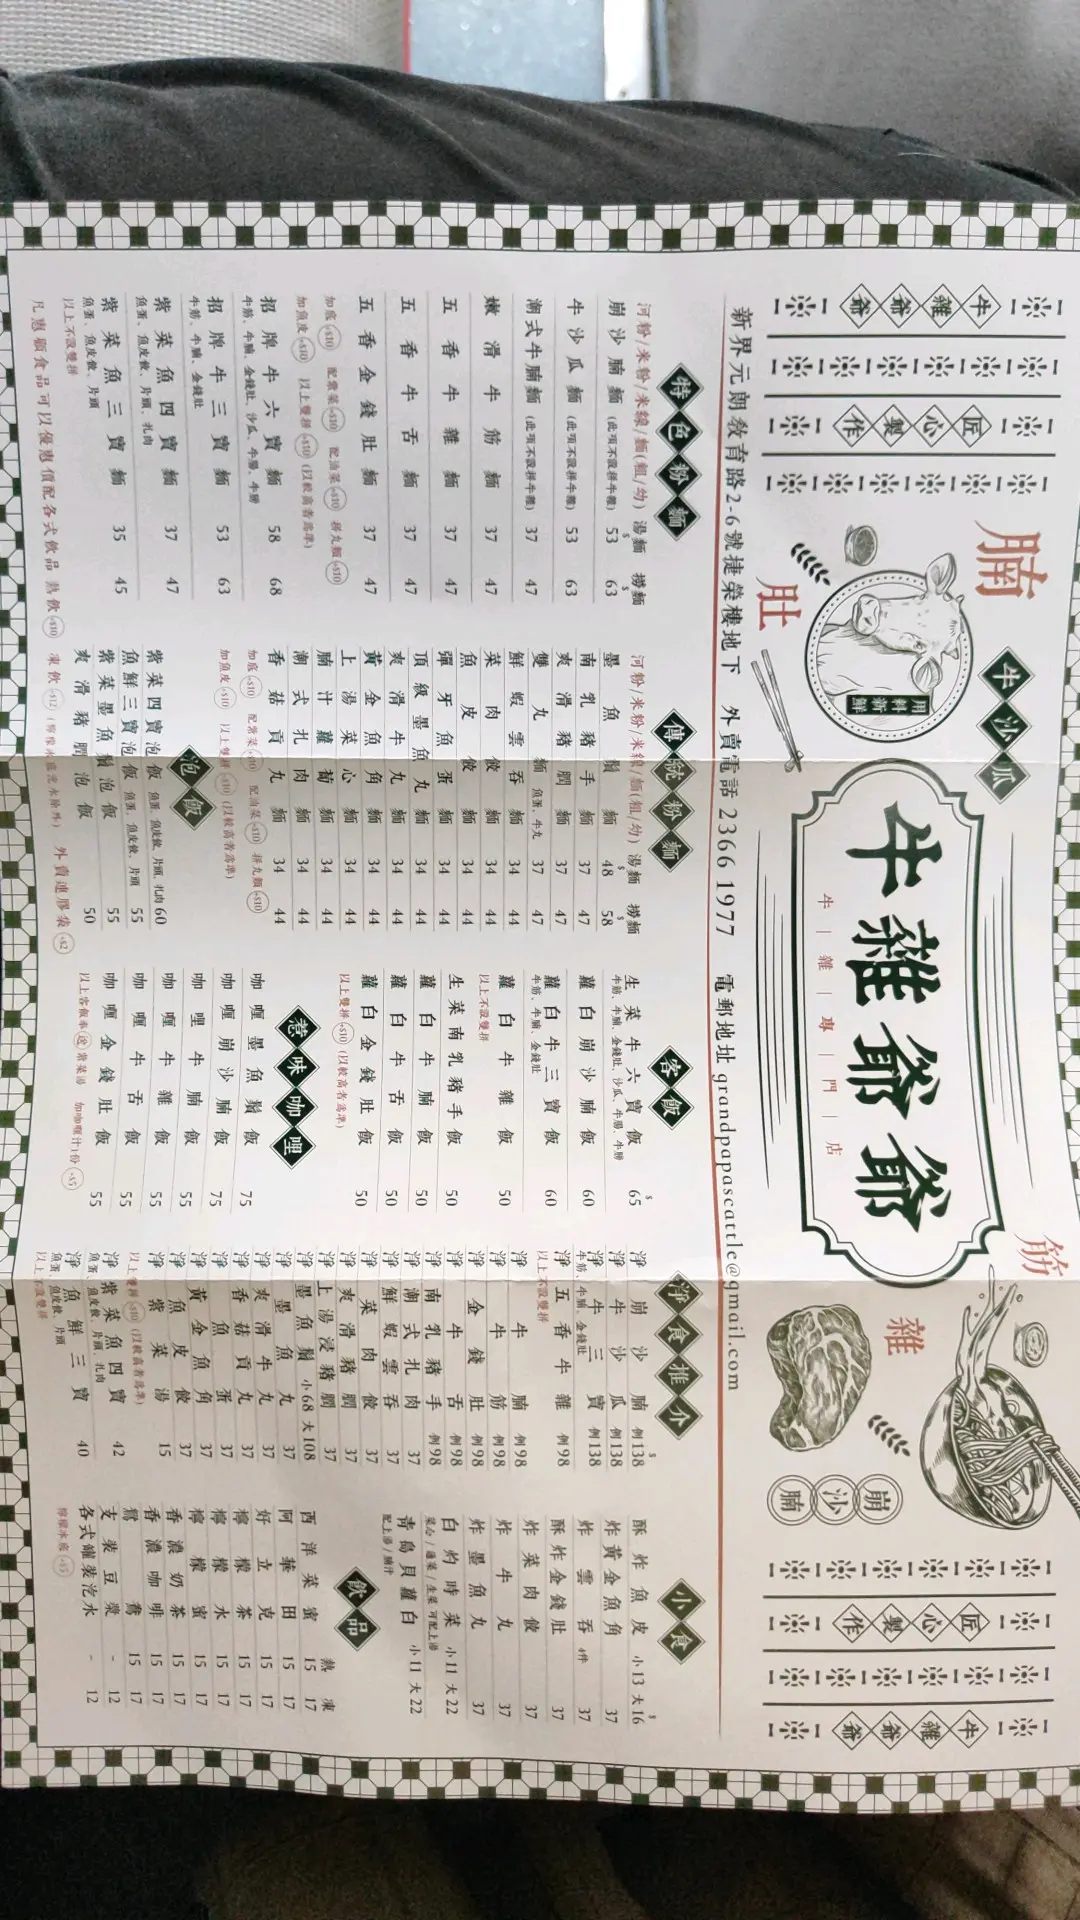 牛雜爺爺
匠心製作
腩
肚
用料新鮮
牛沙瓜
牛雜爺爺
牛|雜|專|門|店
筋
雜
崩沙腩
匠心製作
牛雜爺爺
新界元朗教育路2-6號捷榮樓地下 外賣電話 2366 1977 電郵地址 grandpapascattle@gmail.com
特色粉麵
河粉/米粉/米線/麵(粗/幼) 湯麵 撈麵
崩沙腩麵 (此項不設拼牛雜) $53 $63
牛沙瓜麵 (此項不設拼牛雜) 53 63
潮式牛腩麵 (此項不設拼牛雜) 37 47
嫩滑牛筋麵 37 47
五香牛雜麵 37 47
五香牛舌麵 37 47
五香金錢肚麵 37 47
加底+$10 配常菜+$10 配油菜+$10 拼丸類+$10
加魚皮+$10 以上雙拼+$10 (以較高者為準)
招牌牛六寶麵 58 68
牛筋、牛腩、金錢肚、沙瓜、牛腸、牛膀
招牌牛三寶麵 53 63
牛筋、牛腩、金錢肚
紫菜魚四寶麵 37 47
魚蛋、魚皮餃、片頭、扎肉
紫菜魚三寶麵 35 45
魚蛋、魚皮餃、片頭
以上不設雙拼
傳統粉麵
河粉/米粉/米線/麵(粗/幼) 湯麵 撈麵
墨魚鬚麵 $48 $58
南乳豬手麵 37 47
爽滑豬膶麵 37 47
雙丸麵 魚蛋、牛丸 37 47
鮮蝦雲吞麵 34 44
菜肉餃麵 34 44
魚皮餃麵 34 44
彈牙魚蛋麵 34 44
頂級墨魚丸麵 34 44
爽滑牛丸麵 34 44
黃金魚角麵 34 44
上湯菜心麵 34 44
腩汁蘿蔔麵 34 44
潮式扎肉麵 34 44
香菇貢丸麵 34 44
加底+$10 配常菜+$10 配油菜+$10 拼丸類+$10
加魚皮+$10 以上雙拼+$10 (以較高者為準)
泡飯
紫菜四寶泡飯 魚蛋、魚皮餃、片頭、扎肉 60
魚鮮三寶泡飯 魚蛋、魚皮餃、片頭 55
紫菜墨魚鬚泡飯 55
爽滑豬膶泡飯 50
客飯
生菜牛六寶飯 $65
牛筋、牛腩、金錢肚、沙瓜、牛腸、牛膀
蘿白崩沙腩飯 60
蘿白牛三寶飯 60
牛筋、牛腩、金錢肚
蘿白牛雜飯 50
以上不設雙拼
生菜南乳豬手飯 50
蘿白牛腩飯 50
蘿白牛舌飯 50
蘿白金錢肚飯 50
以上雙拼+$10 (以較高者為準)
惹味咖哩
咖喱墨魚鬚飯 75
咖喱崩沙腩飯 75
咖哩牛腩飯 55
咖喱牛雜飯 55
咖喱牛舌飯 55
咖喱金錢肚飯 55
以上客飯奉送常菜湯 加咖喱汁1份+$5
淨食推介
淨崩沙腩 例$138
淨牛沙瓜 例138
淨牛三寶 例138
牛筋、牛腩、金錢肚
淨五香牛雜 例98
以上不設雙拼
淨牛腩 例98
淨牛筋 例98
淨金錢肚 例98
淨牛舌 例98
淨南乳豬手 例98
淨潮式扎肉 37
淨鮮蝦雲吞 37
淨菜肉餃 37
淨爽滑豬膶 37
淨上湯浸豬膶 37
淨墨魚鬚 小68 大108
淨墨魚丸 37
淨爽滑牛丸 37
淨香菇貢丸 37
淨魚蛋 37
淨黃金魚角 37
淨魚皮餃 37
淨紫菜湯 15
以上雙拼+$10 (以較高者為準)
淨紫菜魚四寶 42
魚蛋、魚皮餃、片頭、扎肉
淨魚鮮三寶 40
魚蛋、魚皮餃、片頭
以上不設雙拼
小食
酥炸魚皮 小13 大$16
炸黃金魚角 37
炸雲吞 4件 37
酥炸金錢肚 37
炸菜肉餃 37
炸牛丸 37
炸墨魚丸 37
白灼時菜 小11 大22
菜心/通菜/生菜 可配上湯
青島貝蘿白 小11 大22
配上湯/腩汁
飲品
熱 凍
西洋菜蜜 15 17
阿華田 15 17
好立克 15 17
檸檬茶 15 17
檸檬水 15 17
檸檬蜜 15 17
香濃奶茶 15 17
香濃咖啡 15 17
鴛鴦 15 17
支裝豆漿 - 12
各式罐裝汽水 - 12
檸檬冰底+$5
凡惠顧食品可以優惠價配各式飲品 熱飲+$10 凍飲+$12 (檸檬冰底光水除外) 外賣連膠袋+$2